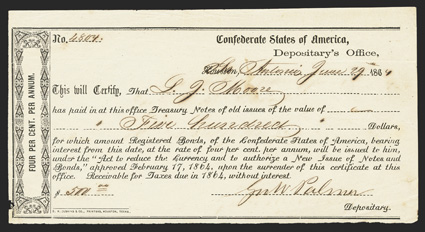 No. 6804.
Confederate States of America,
Depositary's Office,
San Antonio June 29 1864
This will Certify, That L. J. Moore
has paid in at this office Treasury Notes of old issues of the value of
Five hundred Dollars,
for which amount Registered Bonds, of the Confederate States of America, bearing
interest from this date, at the rate of four per cent. per annum, will be issued to him,
under the "Act to reduce the Currency and to authorize a New Issue of Notes and
Bonds," approved February 17, 1864, upon the surrender of this certificate at this
office. Receivable for Taxes due in 1864, without interest.
$ 500.00
Depositary.
FOUR PER CENT. PER ANNUM.